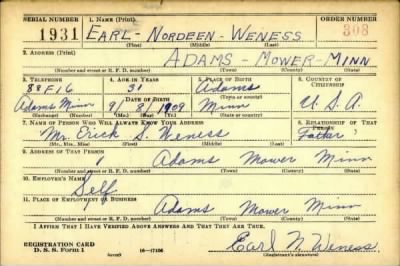 SERIAL NUMBER 1. NAME (Print) ORDER NUMBER
1931 EARL - NORDEEN - WENESS 308
(First) (Middle) (Last)
2. ADDRESS (Print)
ADAMS - MOWER - MINN
(Number and street or R. F. D. number) (Town) (County) (State)
3. TELEPHONE 4. AGE IN YEARS 5. PLACE OF BIRTH 6. COUNTRY OF CITIZENSHIP
88F16 31 Adams
DATE OF BIRTH (Town or county)
Adams Minn 9/8/1909 Minn U.S.A.
(Exchange) (Number) (Mo.) (Day) (Yr.) (State or country)
7. NAME OF PERSON WHO WILL ALWAYS KNOW YOUR ADDRESS 8. RELATIONSHIP OF THAT PERSON
Mr. Erick S. Weness Father
(Mr., Mrs., Miss) (First) (Middle) (Last)
9. ADDRESS OF THAT PERSON
Adams Mower Minn
(Number and street or R. F. D. number) (Town) (County) (State)
10. EMPLOYER'S NAME
Self
11. PLACE OF EMPLOYMENT OR BUSINESS
Adams Mower Minn
(Number and street or R. F. D. number) (Town) (County) (State)
I AFFIRM THAT I HAVE VERIFIED ABOVE ANSWERS AND THAT THEY ARE TRUE.
REGISTRATION CARD
D. S. S. Form 1 (over) 16—17105 Earl N. Weness
(Registrant's signature)